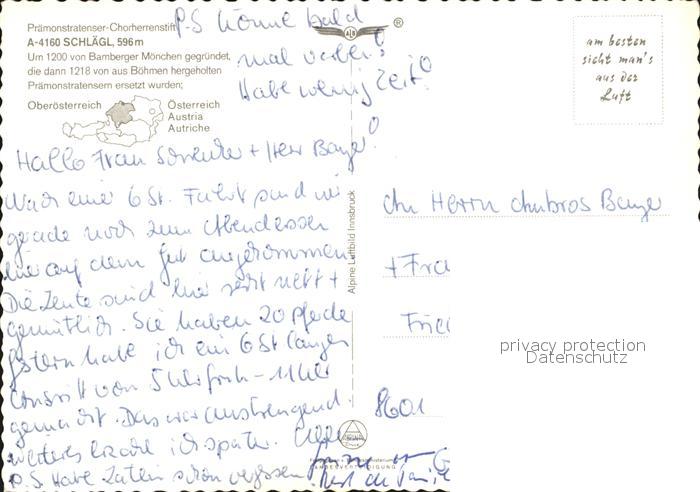 P.S könne bald
mal vorbei!
Habe wenig Zeit!
Prämonstratenser-Chorherrenstift
A-4160 SCHLÄGL, 596 m
Um 1200 von Bamberger Mönchen gegründet,
die dann 1218 von aus Böhmen hergeholten
Prämonstratensern ersetzt wurden;
Oberösterreich
Österreich
Austria
Autriche
am besten
sieht man's
aus der
Luft
Hallo Frau + Herr Bayer!
Nach einer 6 St. Fahrt sind wir
gerade noch zum Abendessen
hier auf dem Gut angekommen
Die Leute sind hier sehr nett +
gemütlich. Sie haben 20 Pferde
gestern habe ich ein 6 St langen
Ausritt von 5 Uhr früh - 11 Uhr
gemacht. Das war anstrengend.
weiteres erzähl ich später.
P.S. Habe Latein schon vergessen
Alpine Luftbild Innsbruck
An Herrn Ambros Bayer
+ Fra
Frie
8601
privacy protection
Datenschutz